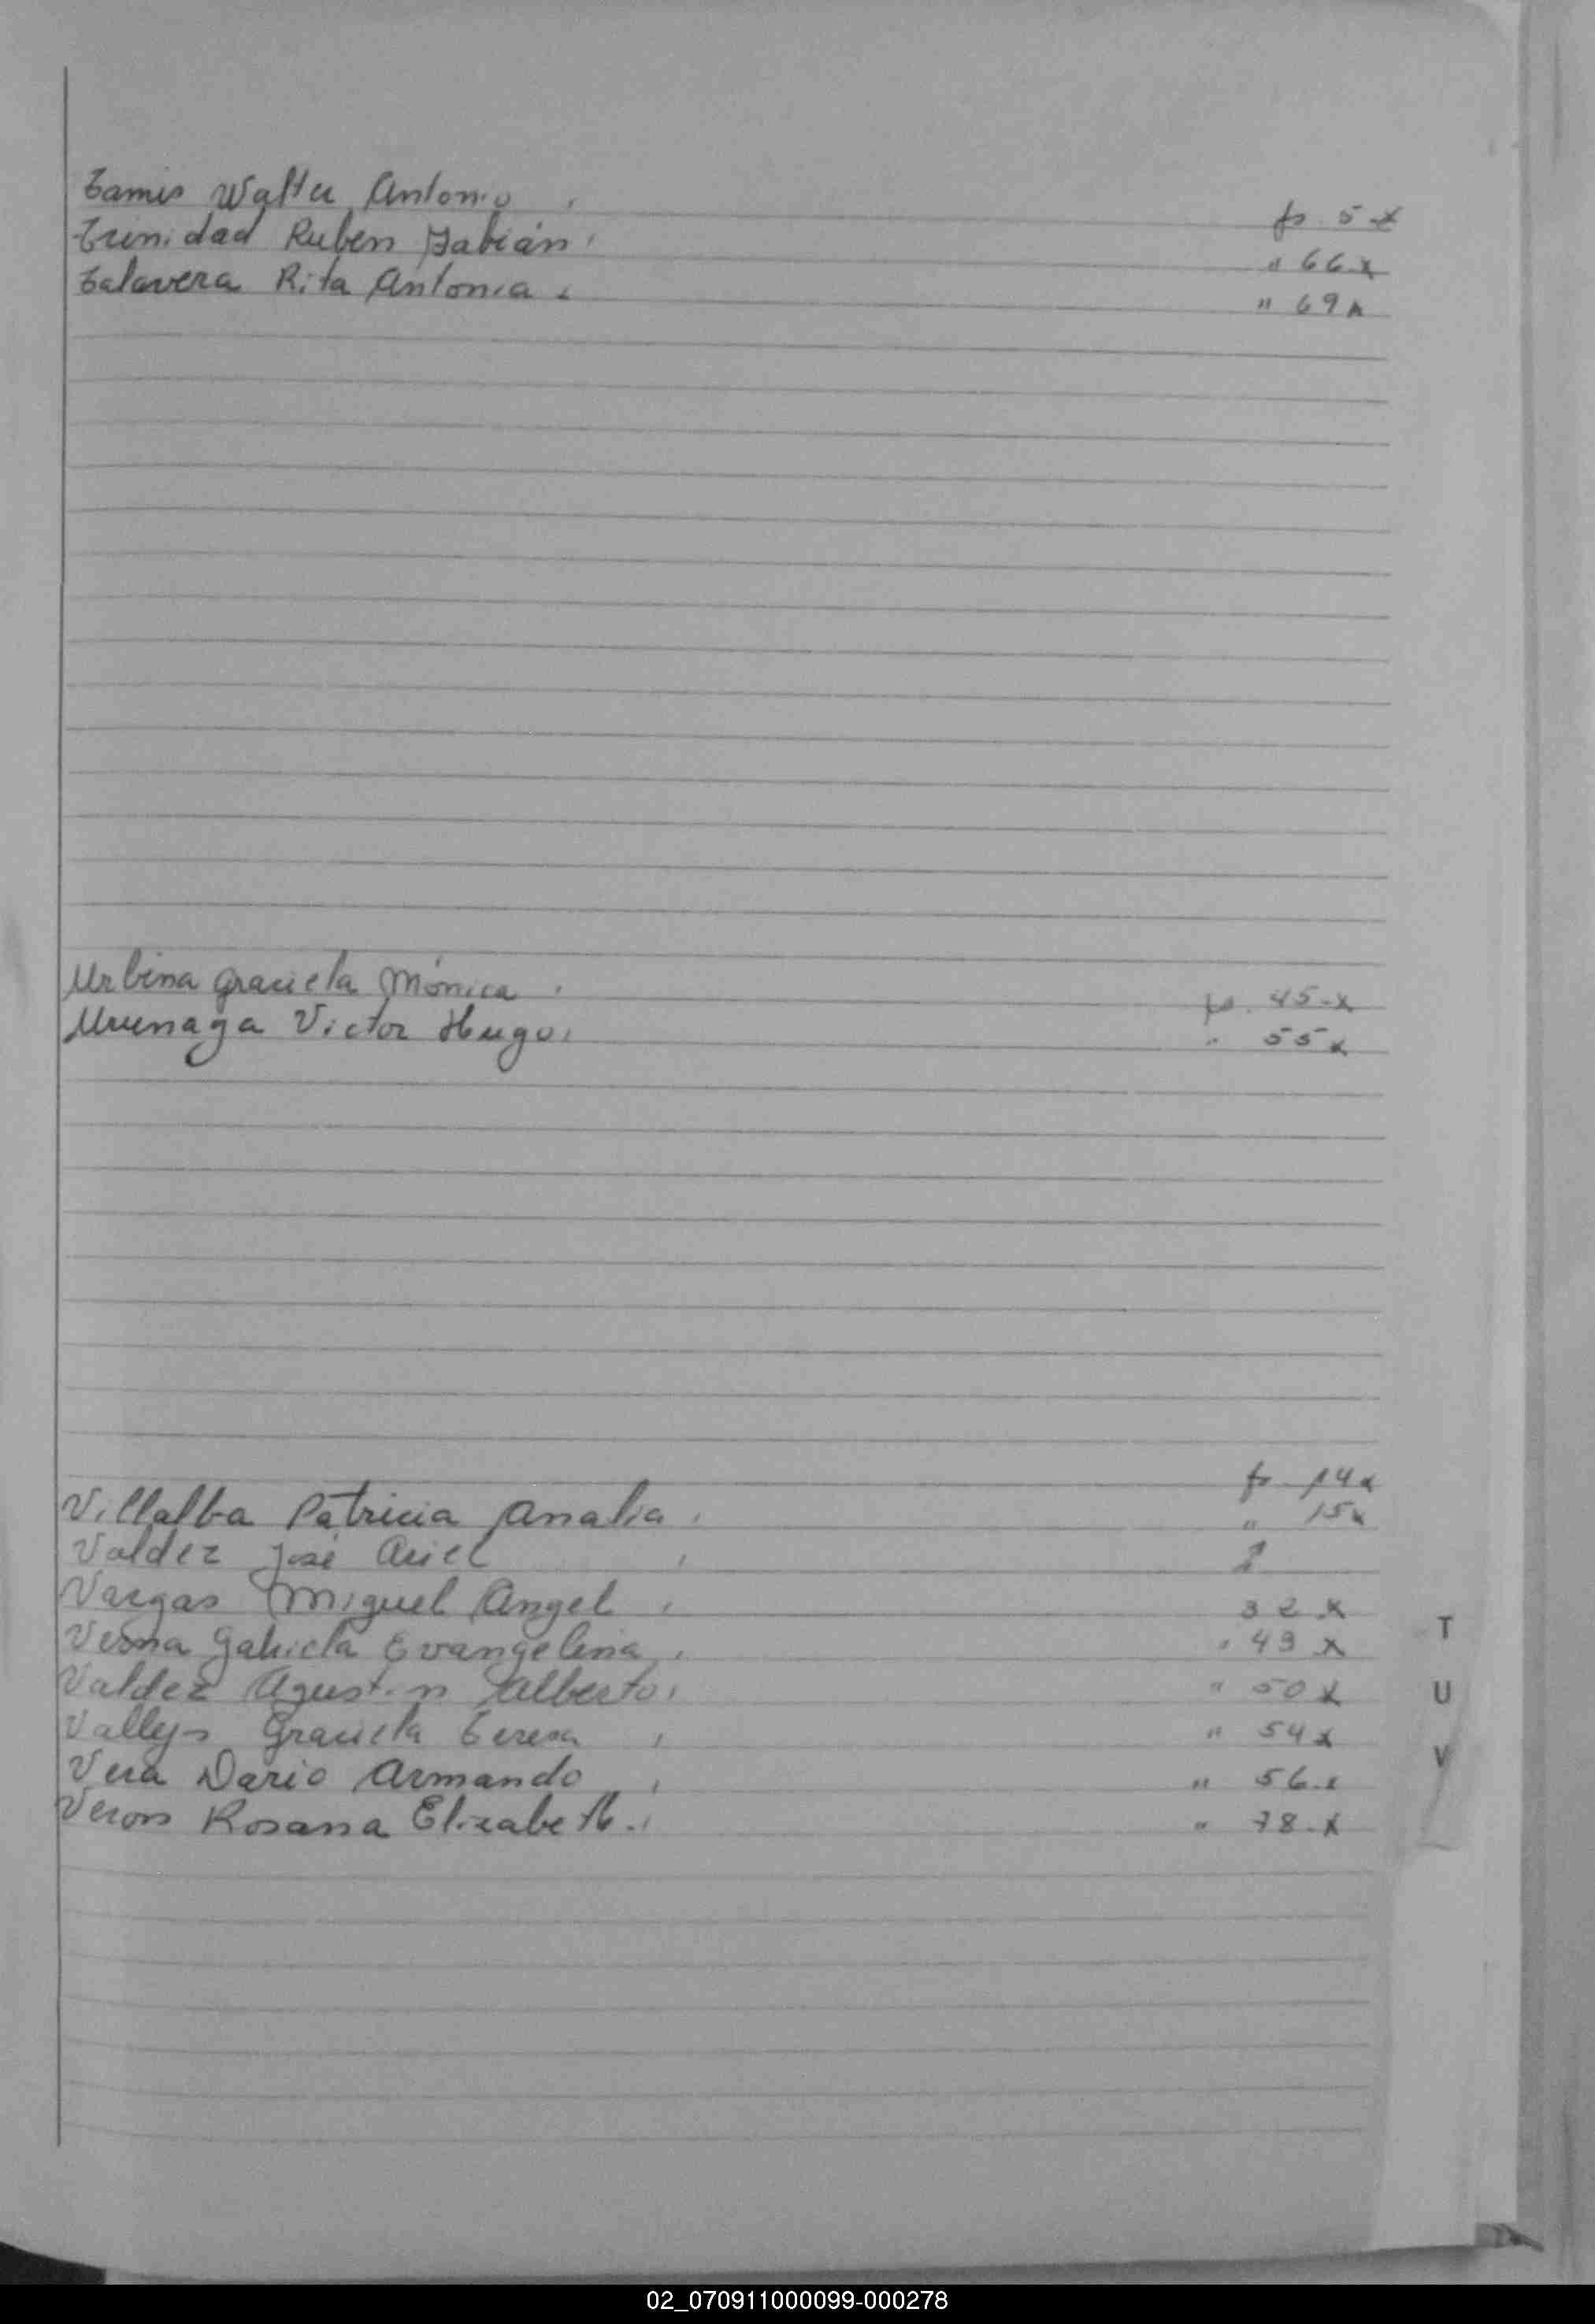 Tamis Walter Antonio fs. 5 x
Trinidad Ruben Fabián " 66 x
Talavera Rita Antonia " 69 x
Urbina Graciela Mónica fs. 45 x
Urunaga Victor Hugo " 55 x
fs 14 x
Villalba Patricia Analia " 15 x
Valdez José Ariel
Vargas Miguel Angel 32 x
Gabriela Evangelina " 43 x
T
Valdez Agustin Alberto " 50 x
U
Vallejs Graciela Teresa " 54 x
V
Vera Dario Armando " 56 x
Veron Rosana Elizabeth " 78 x
02_070911000099-000278